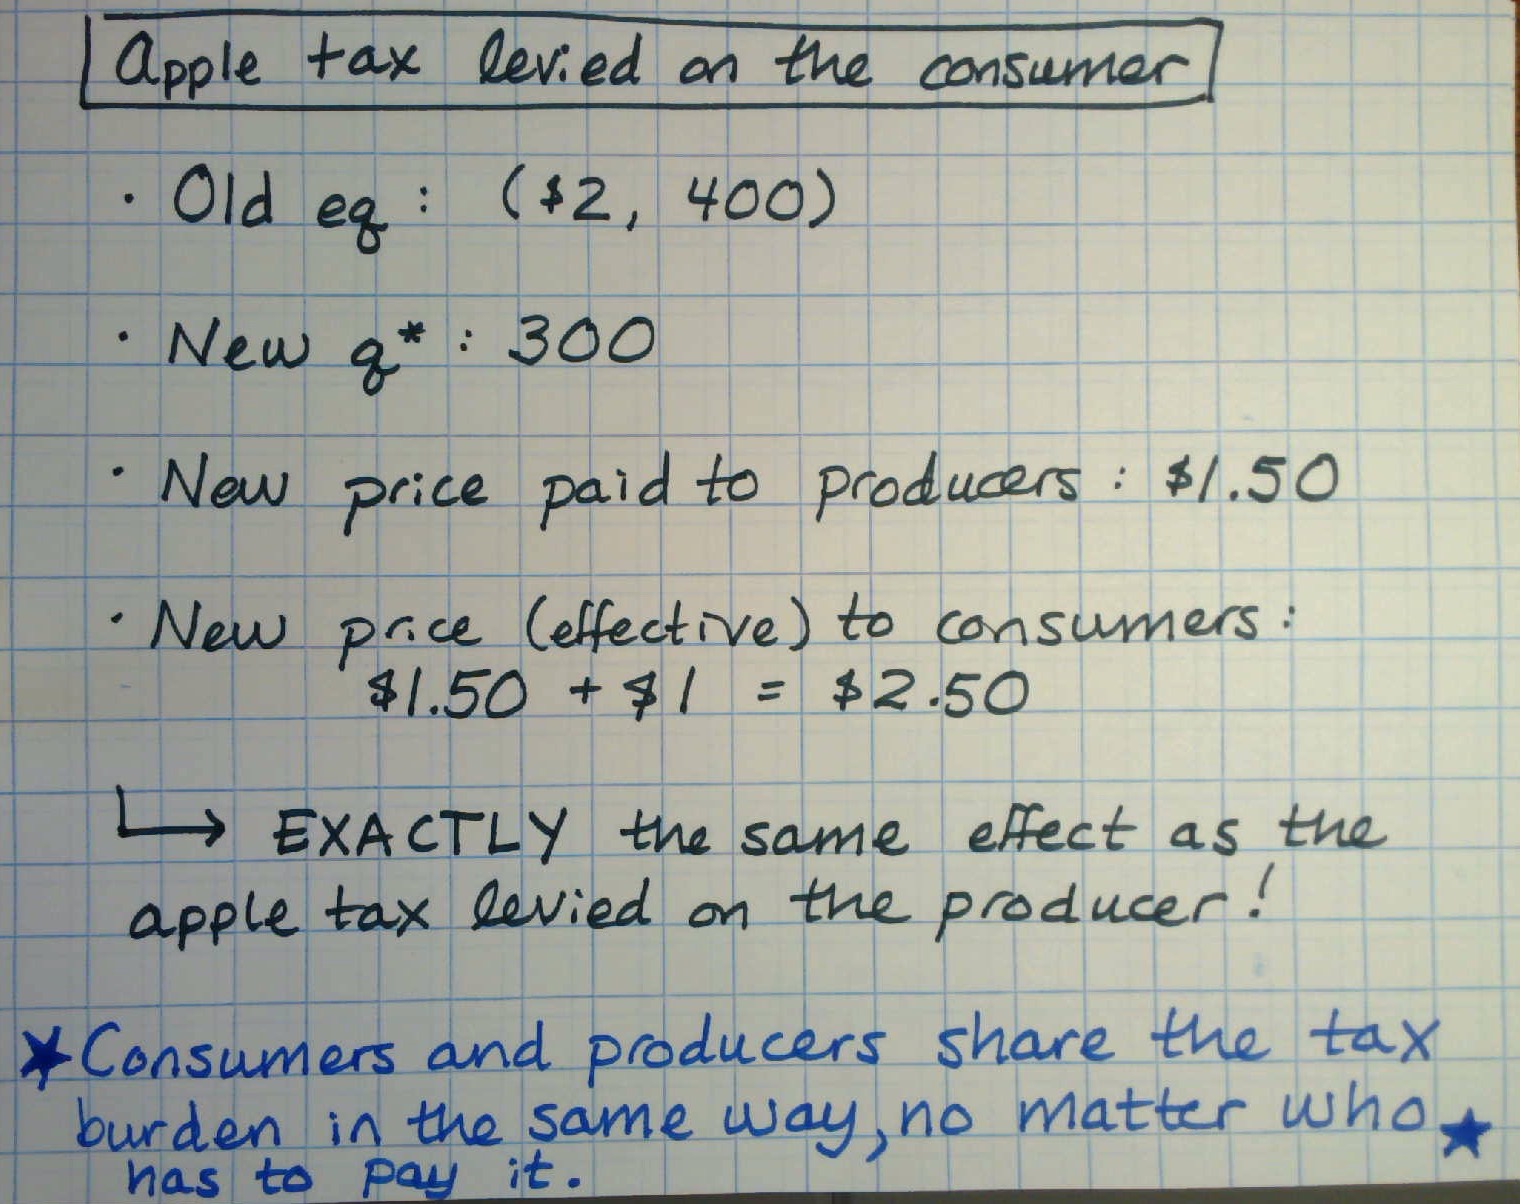 Apple tax levied on the consumer
· Old eq : ($2, 400)
· New q* : 300
· New price paid to producers : $1.50
· New price (effective) to consumers :
$1.50 + $1 = $2.50
↳ EXACTLY the same effect as the
apple tax levied on the producer!
★ Consumers and producers share the tax
burden in the same way, no matter who ★
has to pay it.